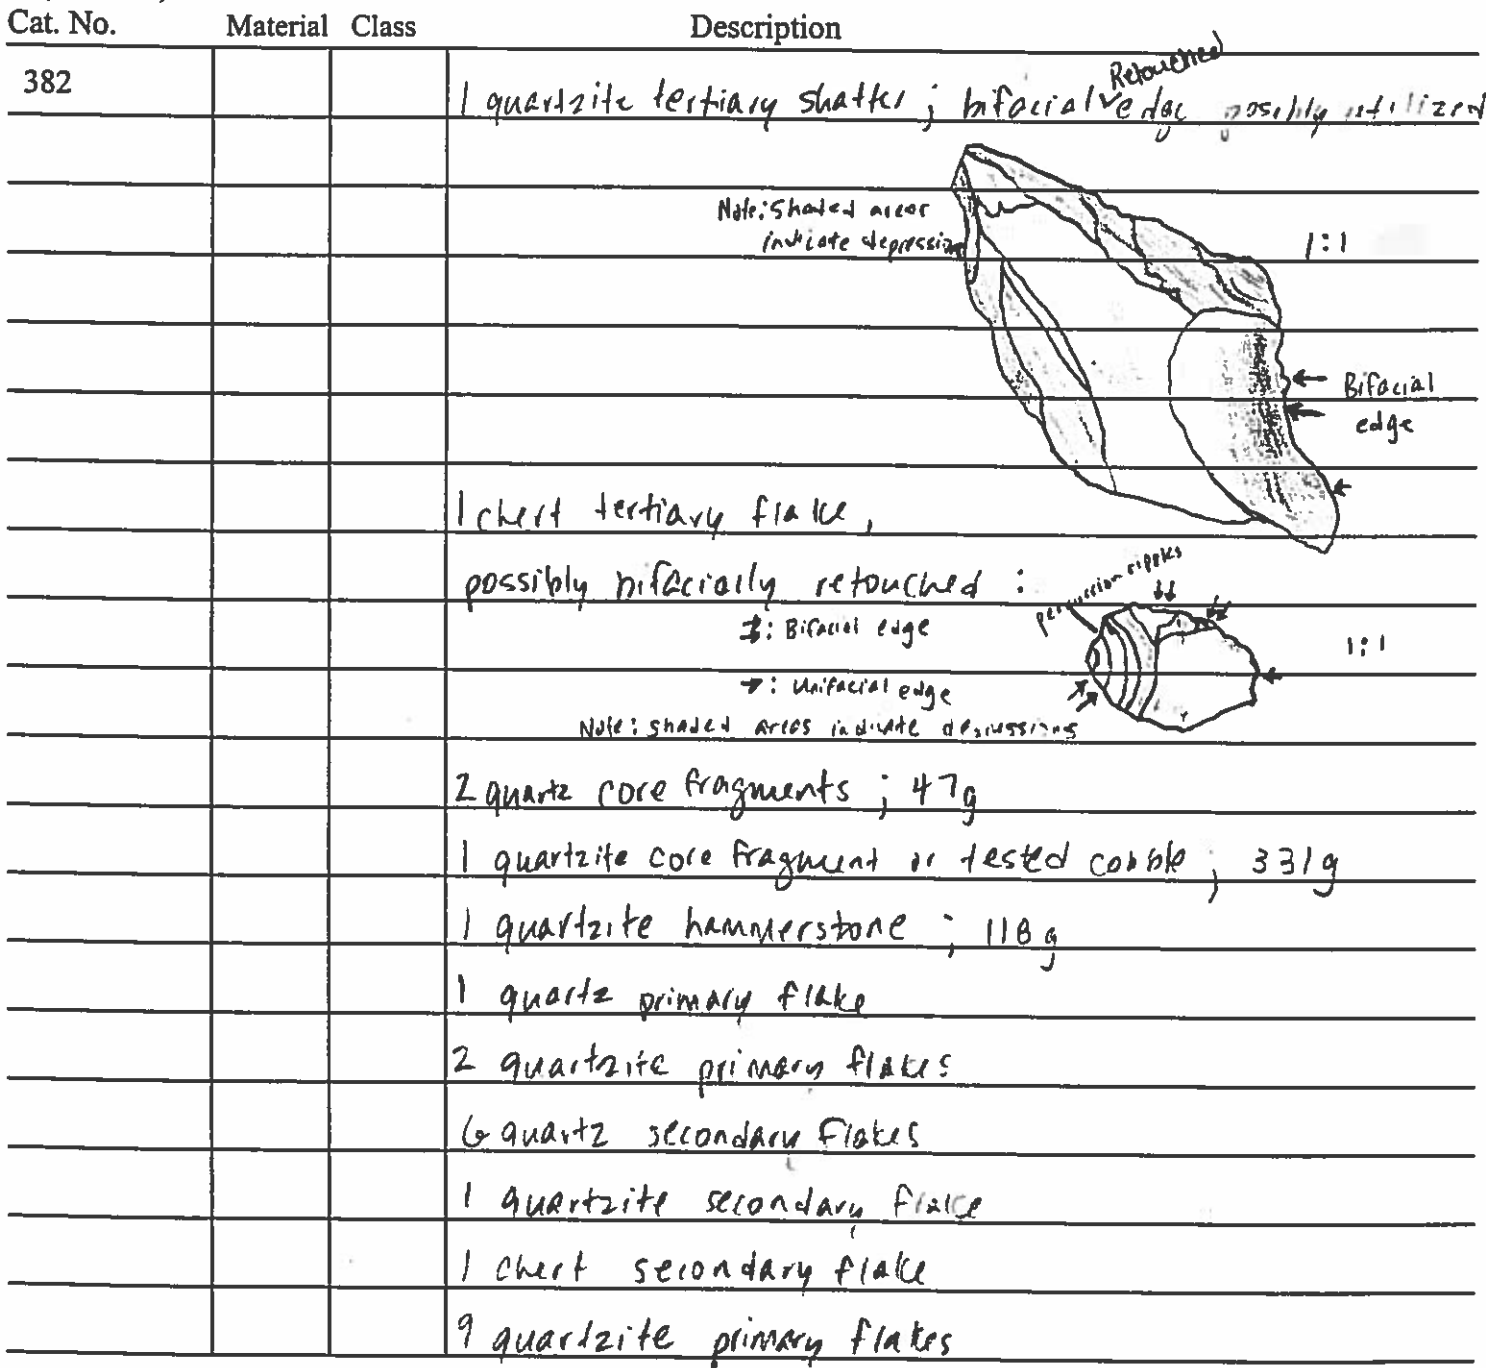 Cat. No. Material Class Description
382
Retouched
1 quartzite tertiary shatter; bifacial edge possibly utilized
Note: Shaded areas
indicate depression
1:1
Bifacial
edge
1 chert tertiary flake,
possibly bifacially retouched :
percussion ripples
: Bifacial edge
1:1
→: Unifacial edge
Note: shaded areas indicate depressions
2 quartz core fragments ; 47g
1 quartzite core fragment or tested cobble ; 331g
1 quartzite hammerstone ; 118g
1 quartz primary flake
2 quartzite primary flakes
6 quartz secondary flakes
1 quartzite secondary flake
1 chert secondary flake
9 quartzite primary flakes